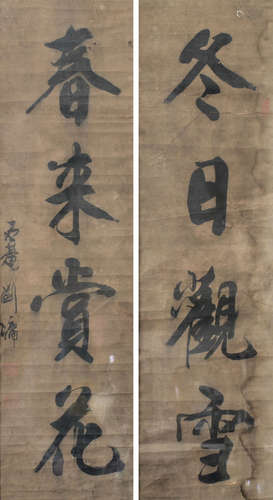 冬日觀雪
春来賞花
石庵劉墉